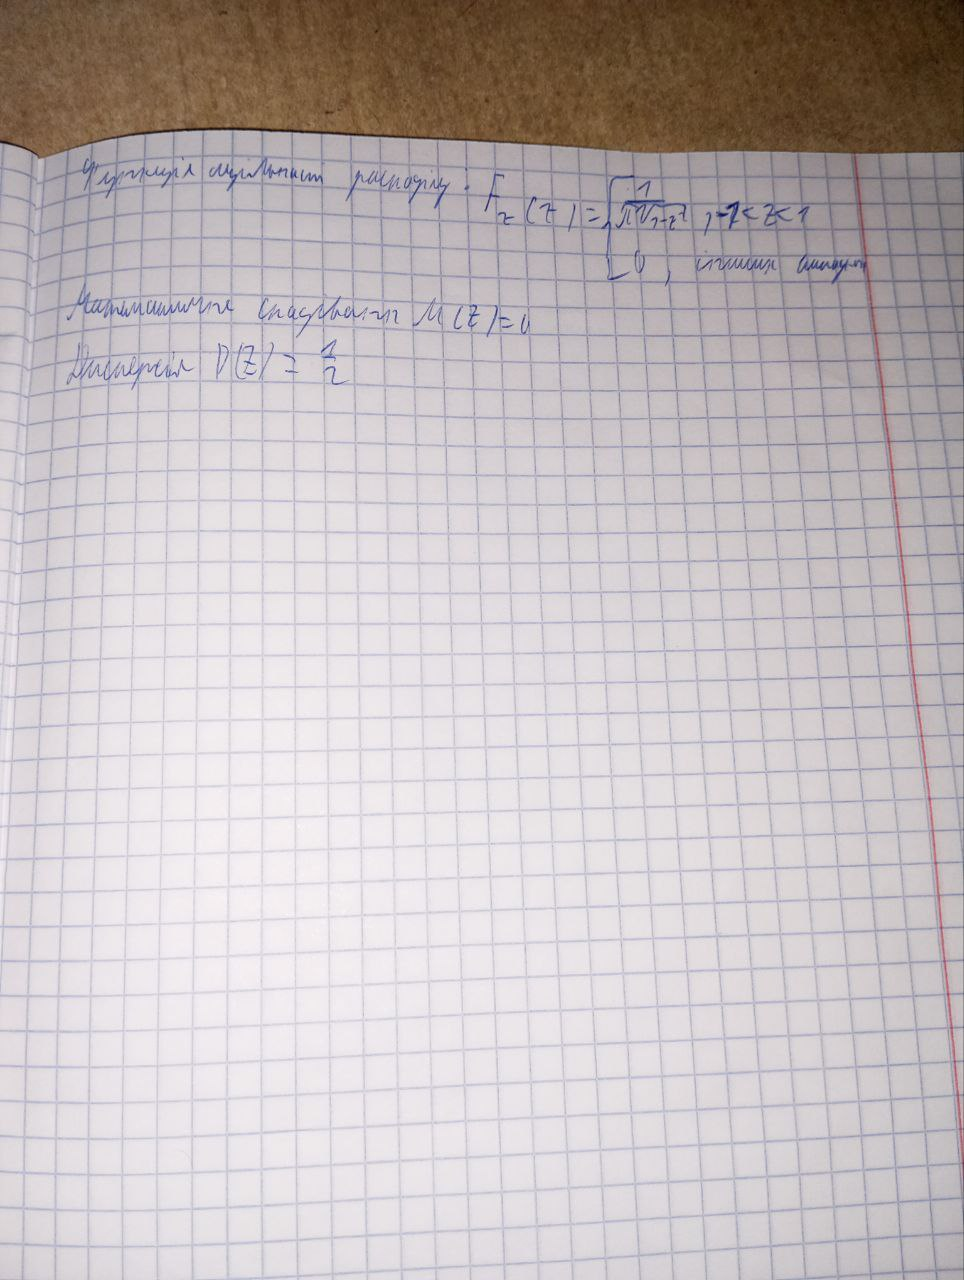 Функція щільності розподілу: F_z(z) = { 1/(π√(1-z²)), -1<z<1
0, інших випадках
Математичне сподівання M(Z)=0
Дисперсія D(Z) = 1/2